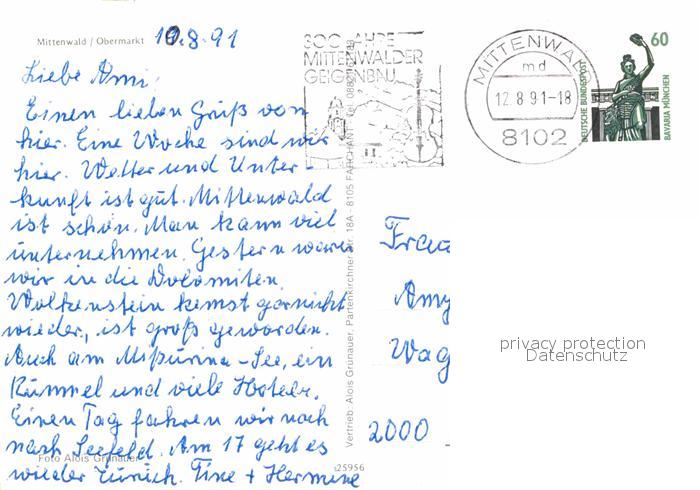 Mittenwald / Obermarkt 10.8.91
Liebe Ami,
Einen lieben Gruß von
hier. Eine Woche sind wir
hier. Wetter und Unter-
kunft ist gut. Mittenwald
ist schön. Man kann viel
unternehmen. Gestern waren
wir in die Dolomiten.
Wolkenstein kennst garnicht
wieder, ist groß geworden.
Auch am Misurina-See, ein
Rummel und viele Hotels.
Einen Tag fahren wir noch
nach Seefeld. Am 17 geht es
wieder zurück. Tine + Hermine
Foto Alois Grünauer
i25956
Vertrieb: Alois Grünauer, Partenkirchner Str. 18A - 8105 FARCHANT, Tel.
300 JAHRE
MITTENWALDER
GEIGENBAU
MITTENWALD
md
12.8.91-18
8102
60
DEUTSCHE BUNDESPOST
BAVARIA MÜNCHEN
Frau
Amy
Wag
2000
privacy protection
Datenschutz